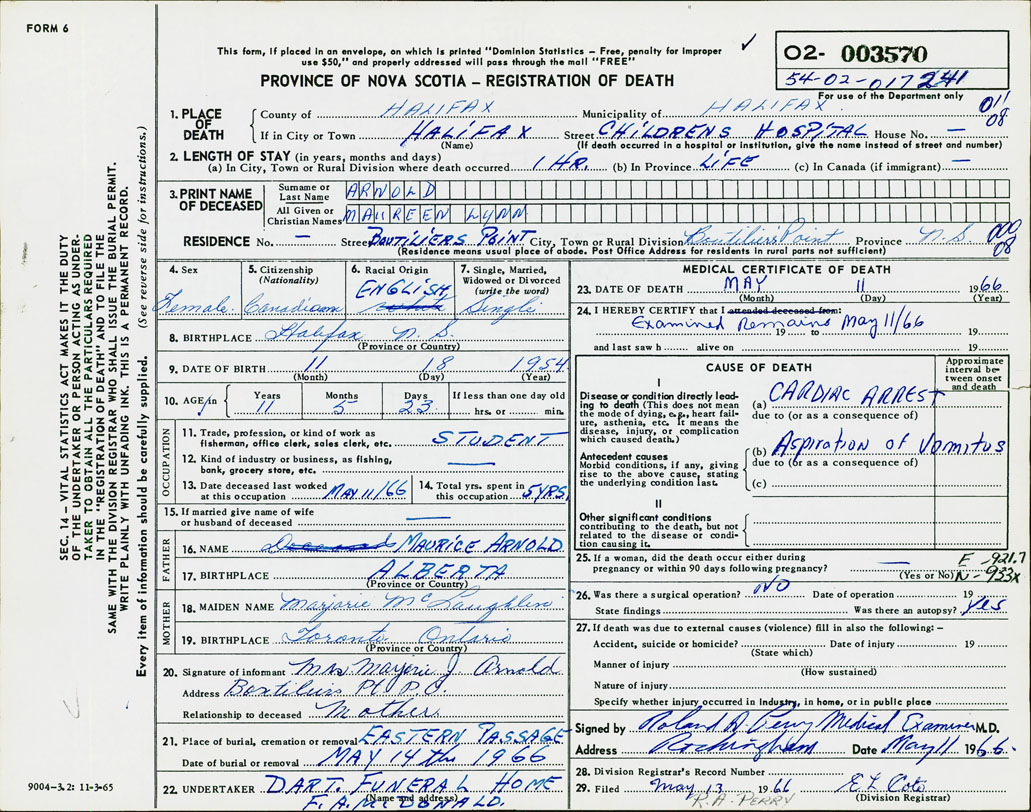 FORM 6
This form, if placed in an envelope, on which is printed "Dominion Statistics – Free, penalty for improper
use $50," and properly addressed will pass through the mail "FREE"
PROVINCE OF NOVA SCOTIA – REGISTRATION OF DEATH
02- 003570
54-02-017241
For use of the Department only
1. PLACE OF DEATH
County of HALIFAX Municipality of HALIFAX 011
If in City or Town HALIFAX Street CHILDRENS HOSPITAL House No. — 08
(Name) (If death occurred in a hospital or institution, give the name instead of street and number)
2. LENGTH OF STAY (in years, months and days)
(a) In City, Town or Rural Division where death occurred 1 HR. (b) In Province LIFE (c) In Canada (if immigrant) —
3. PRINT NAME OF DECEASED
Surname or Last Name ARNOLD
All Given or Christian Names MAUREEN LYNN
RESIDENCE No. — Street BOUTILIERS POINT City, Town or Rural Division Boutilier's Point Province N.S 000
(Residence means usual place of abode. Post Office Address for residents in rural parts not sufficient) 08
SEC. 14 – VITAL STATISTICS ACT MAKES IT THE DUTY
OF THE UNDERTAKER OR PERSON ACTING AS UNDER-
TAKER TO OBTAIN ALL THE PARTICULARS REQUIRED
IN THE "REGISTRATION OF DEATH" AND TO FILE THE
SAME WITH THE DIVISION REGISTRAR WHO SHALL ISSUE THE BURIAL PERMIT.
WRITE PLAINLY WITH UNFADING INK. THIS IS A PERMANENT RECORD.
Every item of information should be carefully supplied. (See reverse side for instructions.)
4. Sex Female
5. Citizenship (Nationality) Canadian
6. Racial Origin ENGLISH
7. Single, Married, Widowed or Divorced (write the word) Single
8. BIRTHPLACE Halifax N.S.
(Province or Country)
9. DATE OF BIRTH 11 18 1954
(Month) (Day) (Year)
10. AGE in Years Months Days If less than one day old
11 5 23 hrs. or min.
OCCUPATION
11. Trade, profession, or kind of work as
fisherman, office clerk, sales clerk, etc. STUDENT
12. Kind of industry or business, as fishing,
bank, grocery store, etc. —
13. Date deceased last worked
at this occupation MAY 11/66
14. Total yrs. spent in
this occupation 5 YRS.
15. If married give name of wife
or husband of deceased —
FATHER
16. NAME MAURICE ARNOLD
17. BIRTHPLACE ALBERTA
(Province or Country)
MOTHER
18. MAIDEN NAME Marjorie McLaughlin
19. BIRTHPLACE Toronto Ontario
(Province or Country)
20. Signature of informant Mrs. Marjorie J. Arnold
Address Boutiliers Pt P.O.
Relationship to deceased Mother
21. Place of burial, cremation or removal EASTERN PASSAGE
Date of burial or removal MAY 14 th 1966
22. UNDERTAKER DART. FUNERAL HOME
(Name and address)
MEDICAL CERTIFICATE OF DEATH
23. DATE OF DEATH MAY 11 1966
(Month) (Day) (Year)
24. I HEREBY CERTIFY that I attended deceased from:
Examined Remains May 11/66
19 to 19
and last saw h alive on 19
CAUSE OF DEATH
Approximate interval between onset and death
I
Disease or condition directly lead-
ing to death (This does not mean
the mode of dying, e.g., heart fail-
ure, asthenia, etc. It means the
disease, injury, or complication
which caused death.)
(a) CARDIAC ARREST
due to (or as a consequence of)
Antecedent causes
Morbid conditions, if any, giving
rise to the above cause, stating
the underlying condition last.
(b) Aspiration of Vomitus
due to (or as a consequence of)
(c)
II
Other significant conditions
contributing to the death, but not
related to the disease or condi-
tion causing it.
25. If a woman, did the death occur either during
pregnancy or within 90 days following pregnancy? —
(Yes or No)
E-921.7
N-933X
26. Was there a surgical operation? NO Date of operation 19
State findings Was there an autopsy? Yes
27. If death was due to external causes (violence) fill in also the following: –
Accident, suicide or homicide? Date of injury 19
(State which)
Manner of injury
(How sustained)
Nature of injury
Specify whether injury occurred in Industry, in home, or in public place
Signed by Roland A. Perry Medical Examiner M.D.
Address Rockingham Date May 11 1966.
28. Division Registrar's Record Number
29. Filed May 13 1966
(Division Registrar)
R.A. PERRY
9004-3.2: 11-3-65